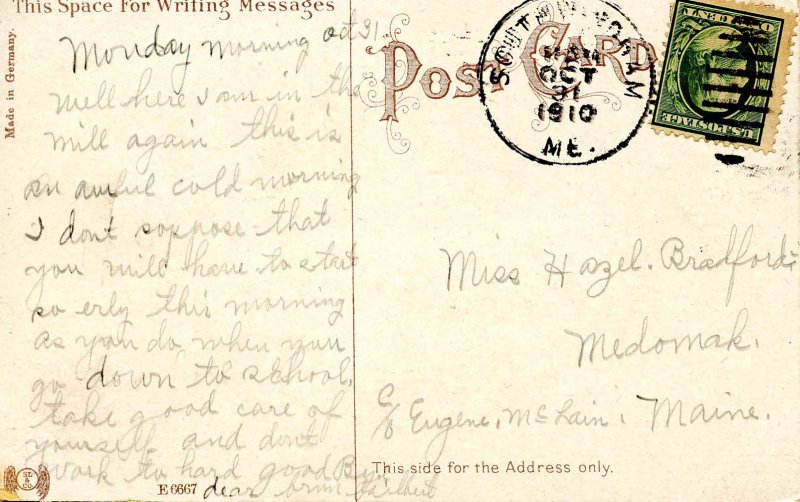 This Space For Writing Messages
Made in Germany.
Monday morning Oct 31
well here I am in the
mill again this is
an awful cold morning
I dont soppose that
you will have to start
so erly this morning
as you do when you
go down to school.
take good care of
yourself and dont
work to hard good By
dear from
E6667
POST CARD
SOUTH WINDHAM
OCT
31
1910
ME.
U.S. POSTAGE
Miss Hazel. Bradford
Medomak.
C/o Eugene, McLain, Maine.
This side for the Address only.